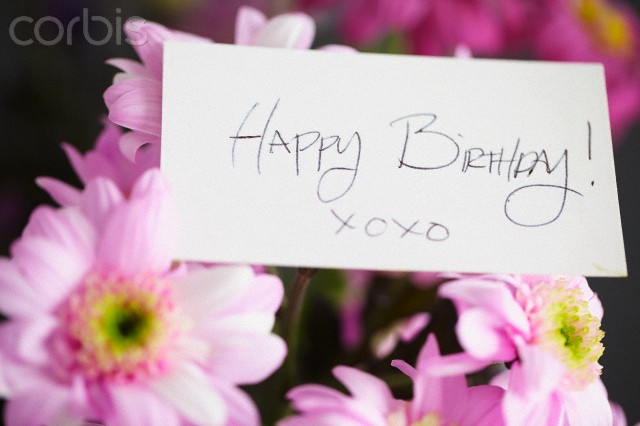 corbis
Happy Birthday!
xoxo